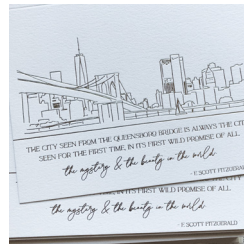 THE CITY SEEN FROM THE QUEENSBORO BRIDGE IS ALWAYS THE CITY
SEEN FOR THE FIRST TIME, IN ITS FIRST WILD PROMISE OF ALL
the mystery & the beauty in the world.
- F. SCOTT FITZGERALD
IN ITS FIRST WILD PROMISE OF ALL
the mystery & the beauty in the world.
- F. SCOTT FITZGERALD